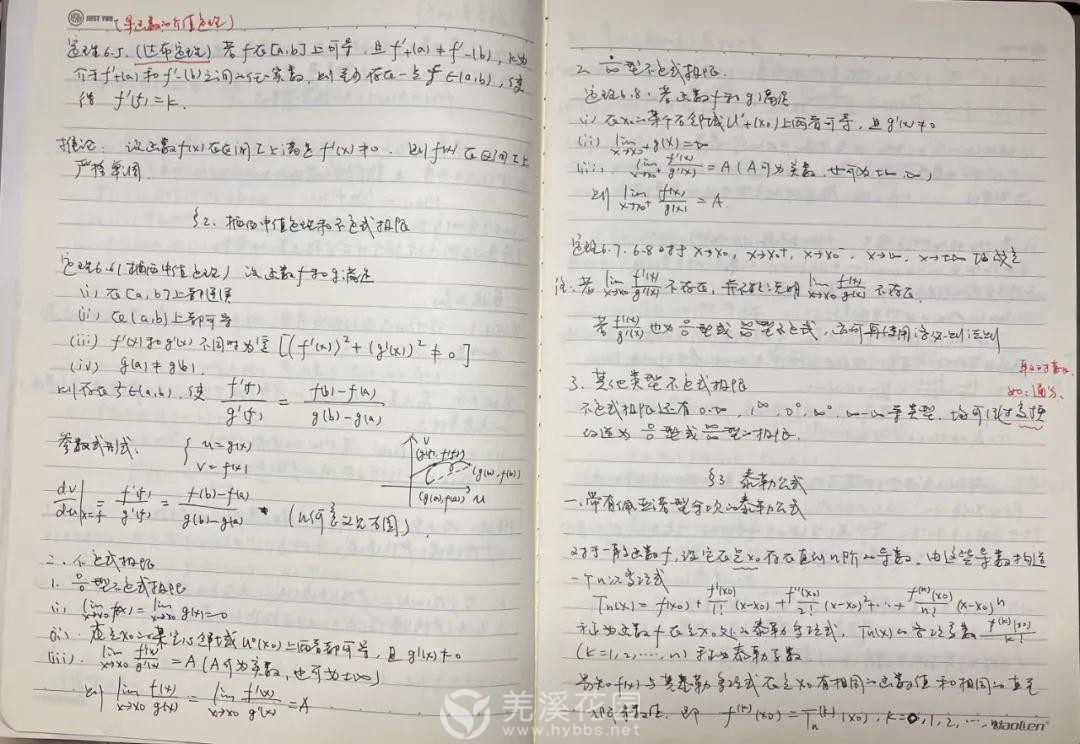 JUST YOU
(导函数的介值定理)
定理6.5.(达布定理) 若f在[a,b]上可导,且f'+(a)≠f'-(b),k为
介于f'+(a)和f'-(b)之间的任一实数,则至少存在一点ξ∈(a,b),使
得 f'(ξ)=k.
推论. 设函数f(x)在区间I上满足f'(x)≠0. 则f(x)在区间I上
严格单调.
§2. 柯西中值定理和不定式极限
定理6.6(柯西中值定理) 设函数f和g满足
(i) 在[a,b]上都连续
(ii) 在(a,b)上都可导
(iii) f'(x)和g'(x)不同时为零 [(f'(x))²+(g'(x))²≠0]
(iv) g(a)≠g(b).
则存在ξ∈(a,b),使 f'(ξ)/g'(ξ) = (f(b)-f(a))/(g(b)-g(a))
参数式形式. { u=g(x)
v=f(x)
v
(g(ξ),f(ξ))
(g(b),f(b))
(g(a),f(a)) u
dv/du|x=ξ = f'(ξ)/g'(ξ) = (f(b)-f(a))/(g(b)-g(a))
二.不定式极限
1. 0/0型不定式极限
(i) lim x→x0 f(x)=lim x→x0 g(x)=0
(ii). 在点x0的某空心邻域U°(x0)上两者都可导,且g'(x)≠0
(iii). lim x→x0 f'(x)/g'(x) =A(A可为实数,也可为±∞)
则 lim x→x0 f(x)/g(x) = lim x→x0 f'(x)/g'(x) =A
2. ∞/∞型不定式极限.
定理6.8. 若函数f和g满足
(i) 在x0的某个右邻域U°+(x0)上两者可导,且g'(x)≠0
(ii) lim x→x0+ g(x)=∞
(iii) lim x→x0+ f'(x)/g'(x) =A(A可为实数,也可为±∞,∞)
则 lim x→x0+ f(x)/g(x) =A.
定理6.7、6.8对于x→x0, x→x0+, x→x0-, x→∞, x→±∞ 均成立
注.若 lim x→x0 f'(x)/g'(x) 不存在,并不能说明 lim x→x0 f(x)/g(x) 不存在.
若 f'(x)/g'(x) 也为0/0型或∞/∞型不定式,可再使用洛必达法则
取对数、
如:通分、
3. 其他类型不定式极限
不定式极限还有0·∞, 1^∞, 0^0, ∞^0, ∞-∞等类型,均可通过变换
改造为0/0型或∞/∞型的极限.
§3 泰勒公式
一.带有佩亚诺型余项的泰勒公式
对于一般函数f,设它在点x0存在直到n阶的导数,由这些导数构造
一个n次多项式
Tn(x) = f(x0) + f'(x0)/1! (x-x0) + f''(x0)/2! (x-x0)²+…+ f^(n)(x0)/n! (x-x0)^n
称为函数f在点x0处的泰勒多项式,Tn(x)的各项系数 f^(k)(x0)/k!
(k=1,2,…,n)称为泰勒系数.
易知f(x)与其泰勒多项式在点x0有相同的函数值和相同的直至
n阶导数值,即 f^(k)(x0)=Tn^(k)(x0), k=0,1,2,…,
羌溪花园
www.hybbs.net